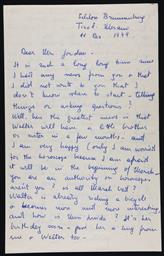 Schloss Brunnenburg
Tirol - Merano
11 Dec 1949.
Dear Mrs Jordan -
It is such a long long time since
I had any news from you & that
I did not write to you that I
don't know where to start - telling
things or asking questions!
Well, here the greatest news is that
Walter will have a little brother
or sister in a few months. And
I am very happy (only I am worried
for the horoscope because I am afraid
it will be in the beginning of March.
You are an authority on horoscopes
aren't you? is all March bad?
Walter is already riding a bicycle
& becomes more and more interesting
and how is Linn ? It's her
birthday soon - give her a hug from
me & Walter too -